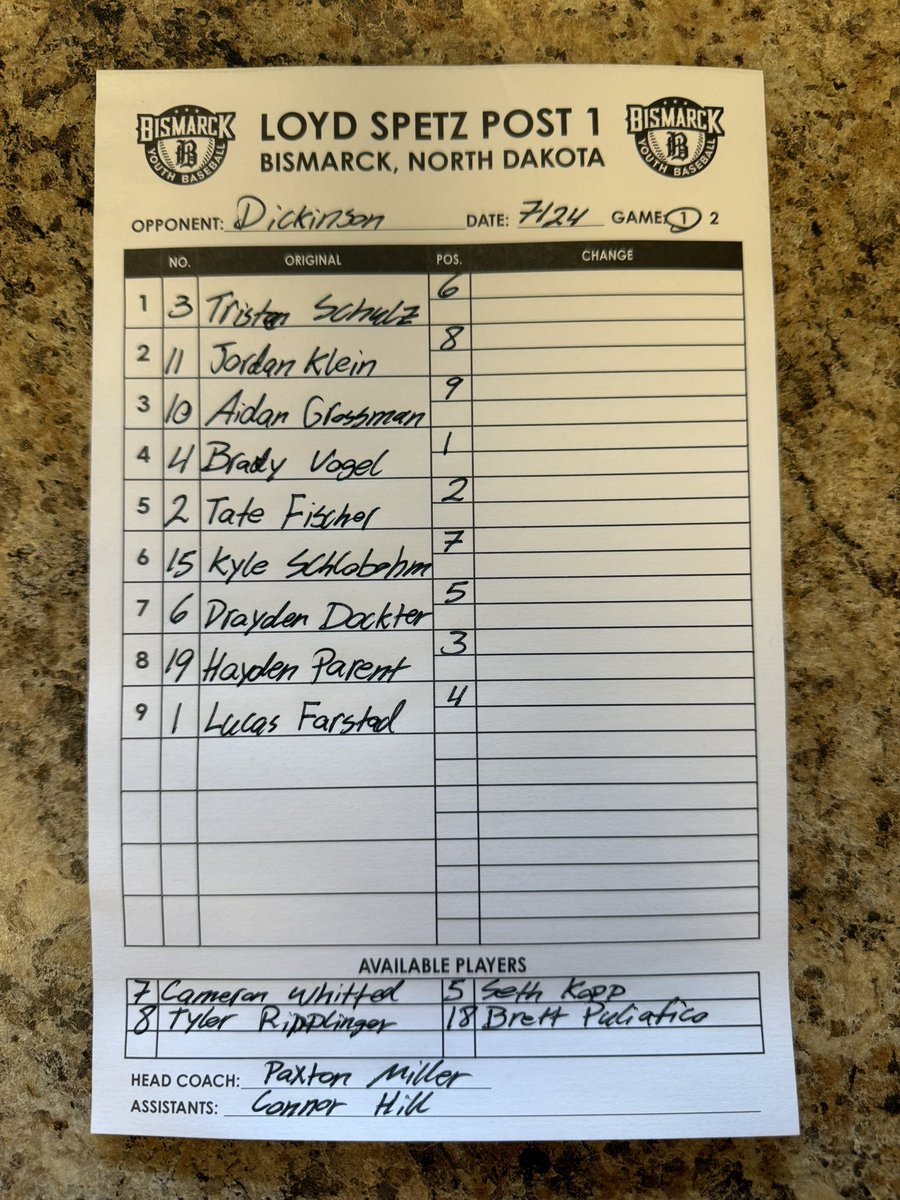 BISMARCK YOUTH BASEBALL B LOYD SPETZ POST 1 BISMARCK YOUTH BASEBALL B
BISMARCK, NORTH DAKOTA
OPPONENT: Dickinson DATE: 7/24 GAME: 1 2
NO. ORIGINAL POS. CHANGE
1 3 Tristan Schulz 6
2 11 Jordan Klein 8
3 10 Aidan Grossman 9
4 4 Brady Vogel 1
5 2 Tate Fischer 2
6 15 Kyle Schlobohm 7
7 6 Drayden Dockter 5
8 19 Hayden Parent 3
9 1 Lucas Farstad 4
AVAILABLE PLAYERS
7 Cameron Whitted 5 Seth Kopp
8 Tyler Ripplinger 18 Brett Puliafico
HEAD COACH: Paxton Miller
ASSISTANTS: Connor Hill